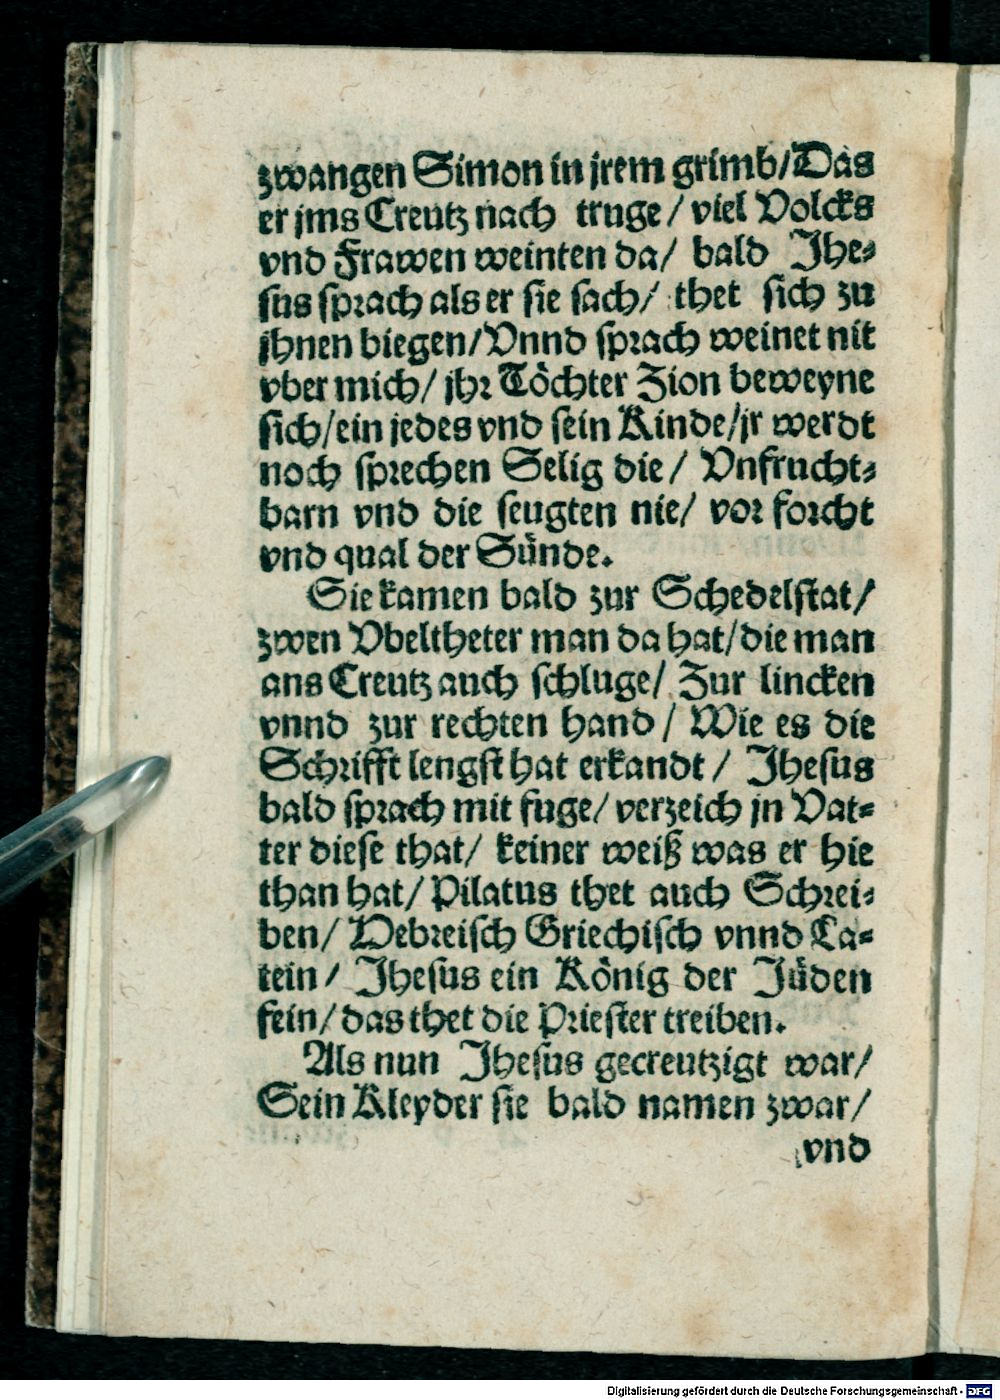 zwangen Simon in jrem grimb/Das
er jms Creutz nach truge/ viel Volcks
vnd Frawen weinten da/ bald Jhe⸗
sus sprach als er sie sach/ thet sich zu
jhnen biegen/Vnnd sprach weinet nit
vber mich/ jhr Töchter Zion beweyne
sich/ein jedes vnd sein Kinde/jr werdt
noch sprechen Selig die/ Vnfrucht⸗
barn vnd die seugten nie/ vor forcht
vnd qual der Sünde.
Sie kamen bald zur Schedelstat/
zwen Vbeltheter man da hat/die man
ans Creutz auch schluge/ Zur lincken
vnnd zur rechten hand/ Wie es die
Schrifft lengst hat erkandt/ Jhesus
bald sprach mit fuge/ verzeich jn Vat⸗
ter diese that/ keiner weiß was er hie
than hat/ Pilatus thet auch Schrei⸗
ben/ Hebreisch Griechisch vnnd La⸗
tein/ Jhesus ein König der Jüden
fein/das thet die Priester treiben.
Als nun Jhesus gecreutzigt war/
Sein Kleyder sie bald namen zwar/
vnd
Digitalisierung gefördert durch die Deutsche Forschungsgemeinschaft - DFG